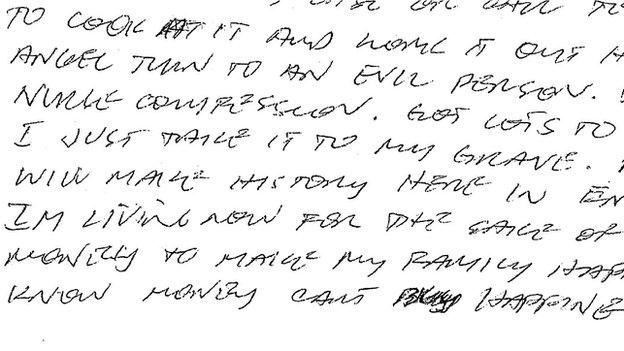 TO LOOK AT IT AND WORK IT OUT H
ANGEL TURN TO AN EVIL PERSON.
NURSE CONFESSION. GOT LOTS TO
I JUST TAKE IT TO MY GRAVE.
WILL MAKE HISTORY HERE IN EN
IM LIVING NOW FOR THE SAKE OF
MONEY TO MAKE MY FAMILY HAPP
KNOW MONEY CANT BUY HAPPINE